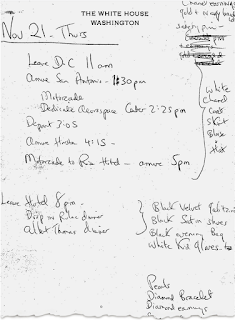 THE WHITE HOUSE
WASHINGTON
Nov 21 - Thurs
Chanel earrings
gold + 
safety pins
Leave DC 11 am
Arrive San Antonio - 1:30 pm
Motorcade
Dedicate Aerospace Center 2:25 pm
Depart 3:05
Arrive Houston 4:15 -
Motorcade to Rice Hotel - arrive 5 pm
White
Chanel
Coat
Skirt
Blouse
Hat
Leave Hotel 8 pm -
Drop in Lulac dinner
Albert Thomas dinner
Black Velvet
Black Satin Shoes
Black evening Bag
White Kid Gloves
Pearls
Diamond Bracelet
Diamond earrings